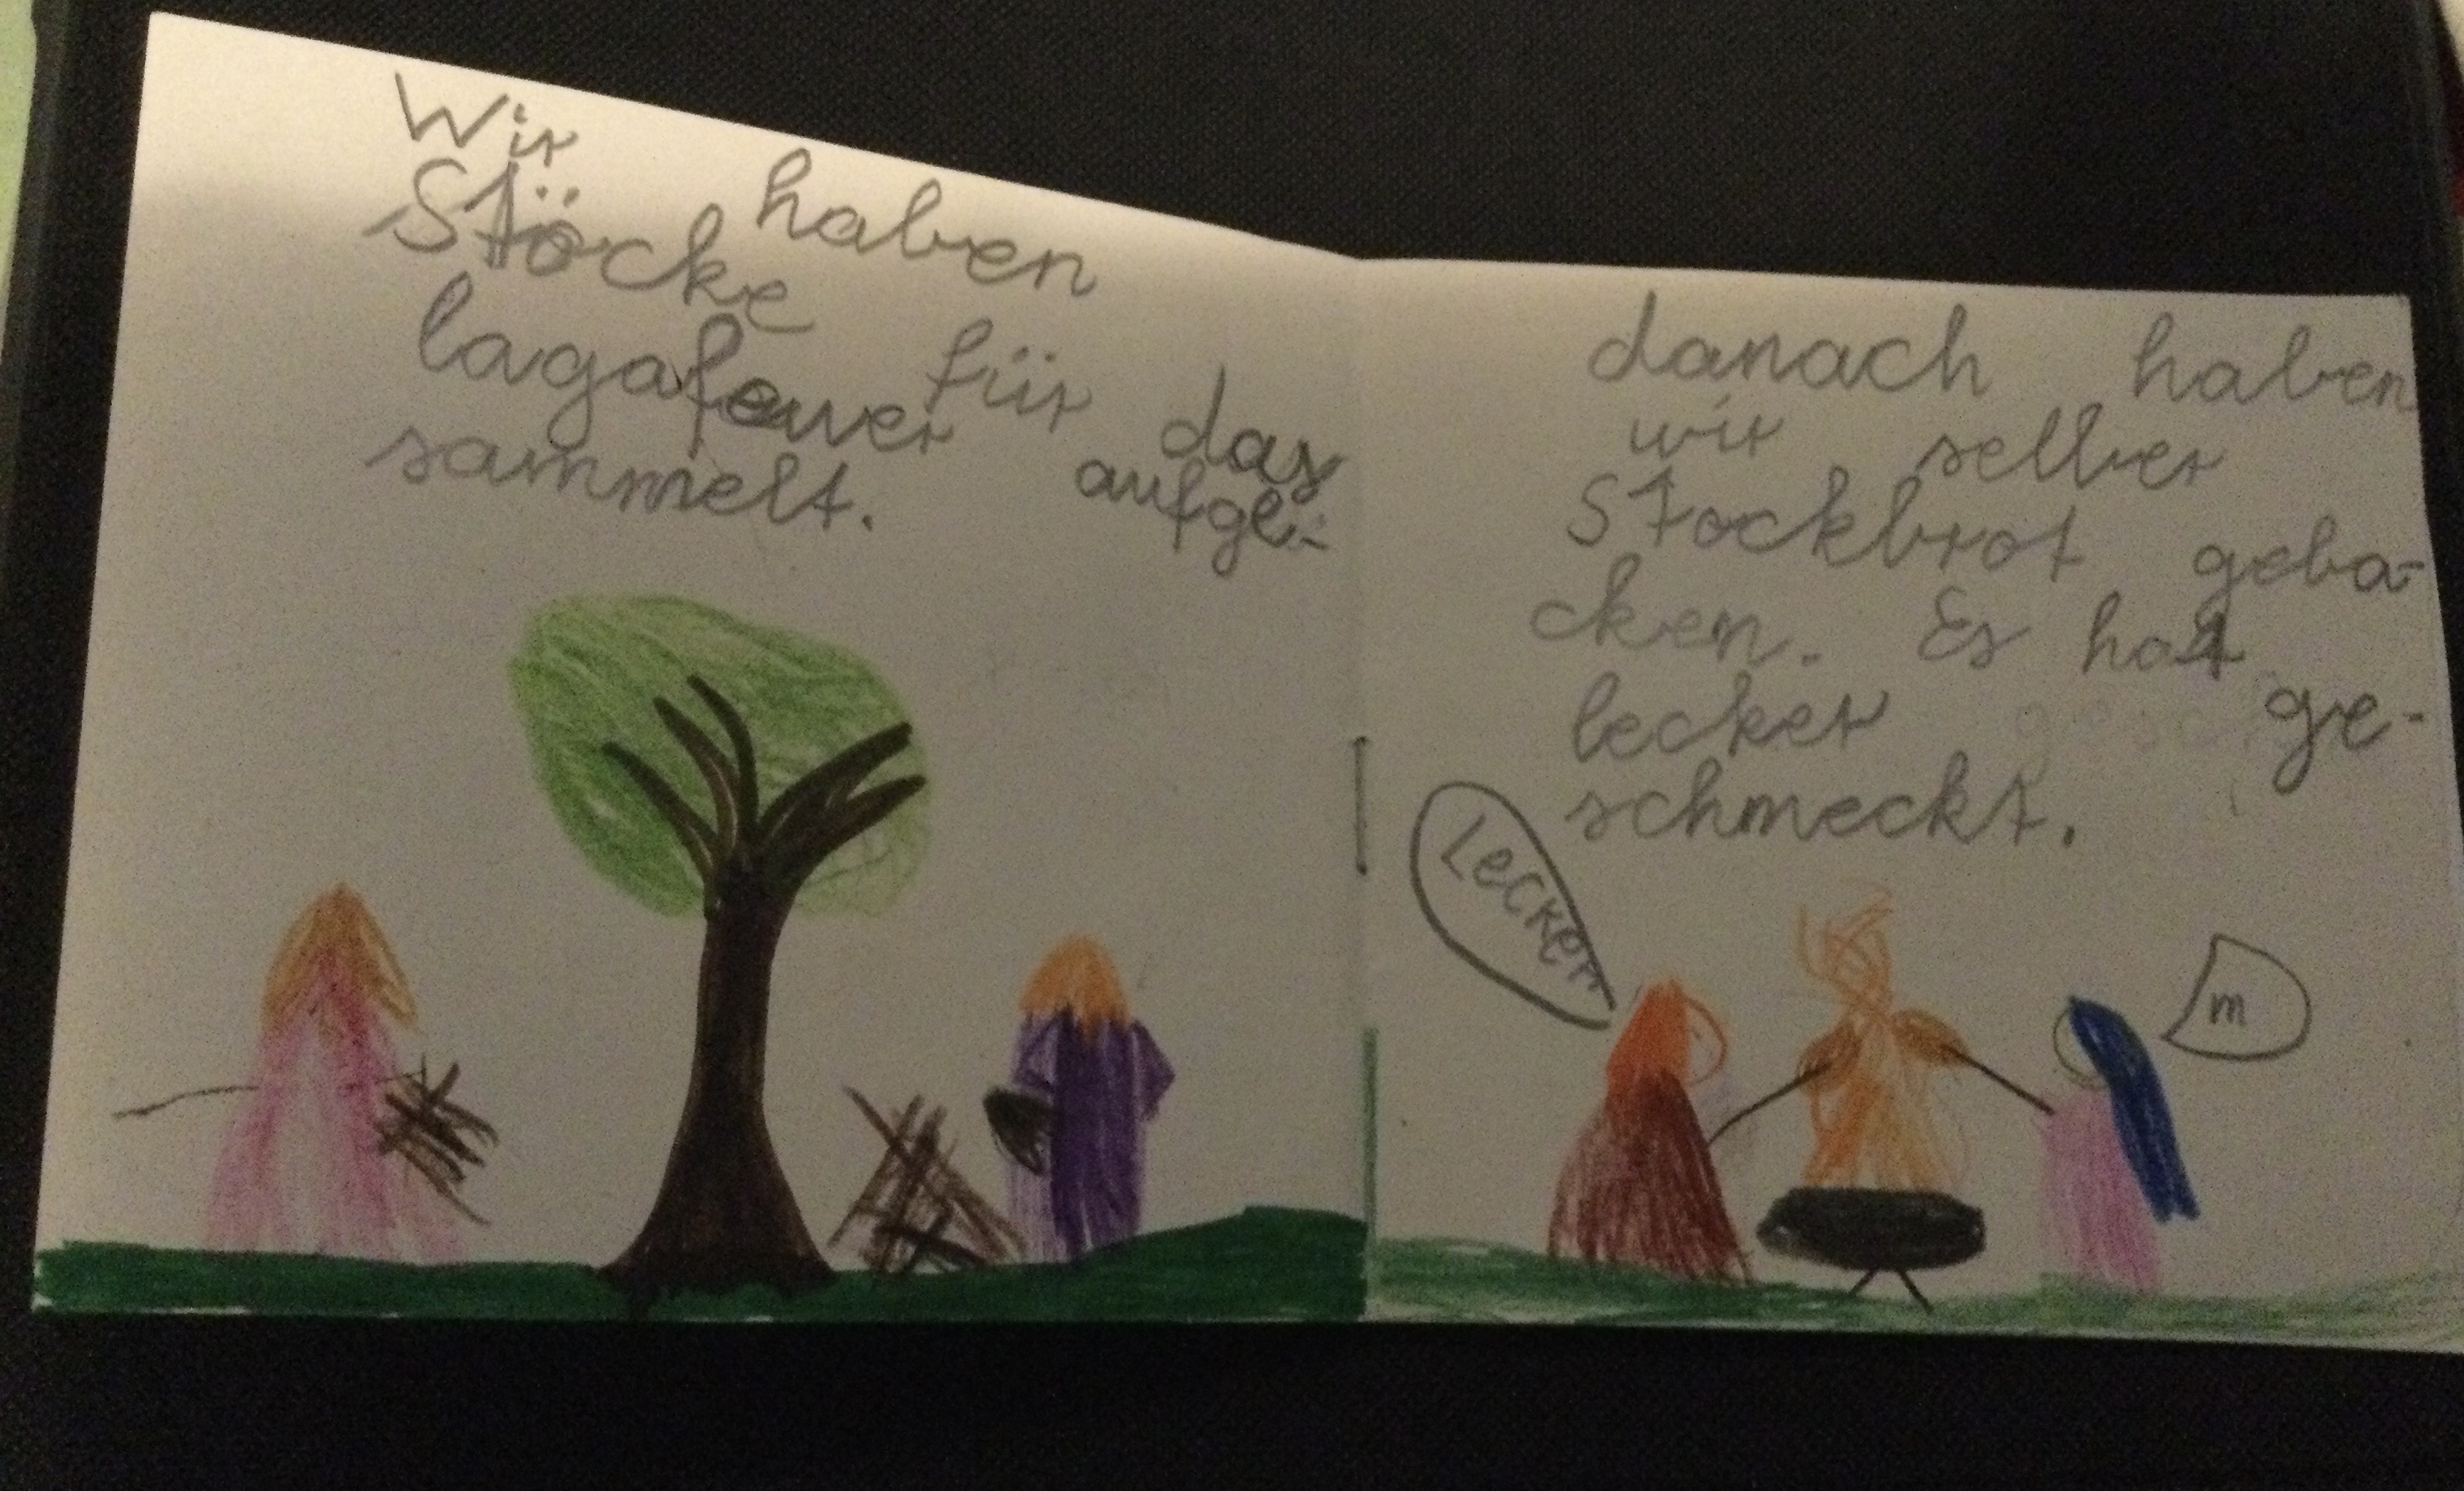 Wir haben
Stöcke für das
lagafeuer aufge-
sammelt.
danach haben
wir selber
Stockbrot geba-
cken. Es hat
lecker ge-
schmeckt.
Lecker
m